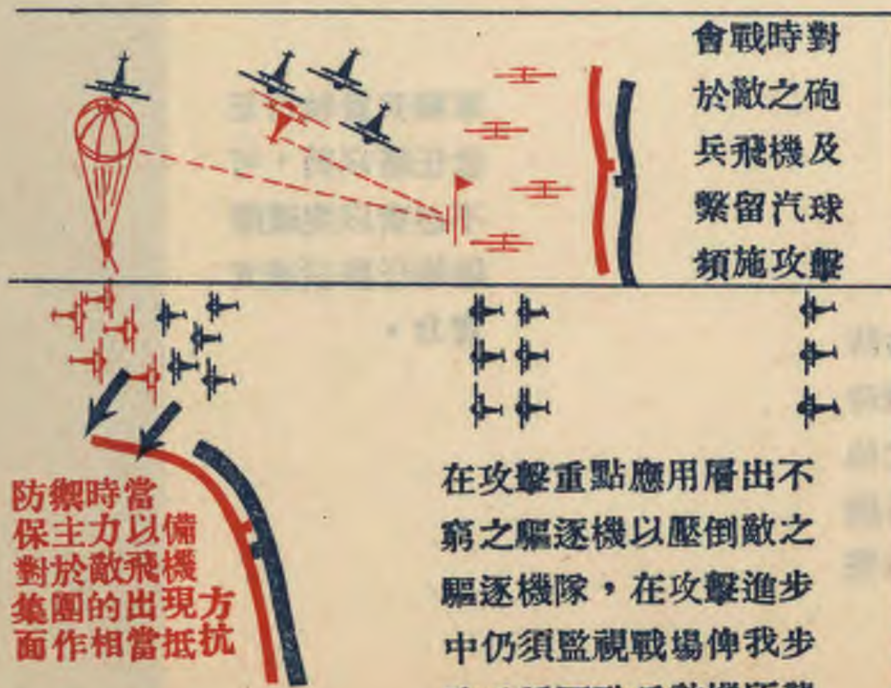 會戰時對
於敵之砲
兵飛機及
繫留汽球
頻施攻擊
防禦時當
保主力以備
對於敵飛機
集團的出現方
面作相當抵抗
在攻擊重點應用層出不
窮之驅逐機以壓倒敵之
驅逐機隊，在攻擊進步
中仍須監視戰場俾我步